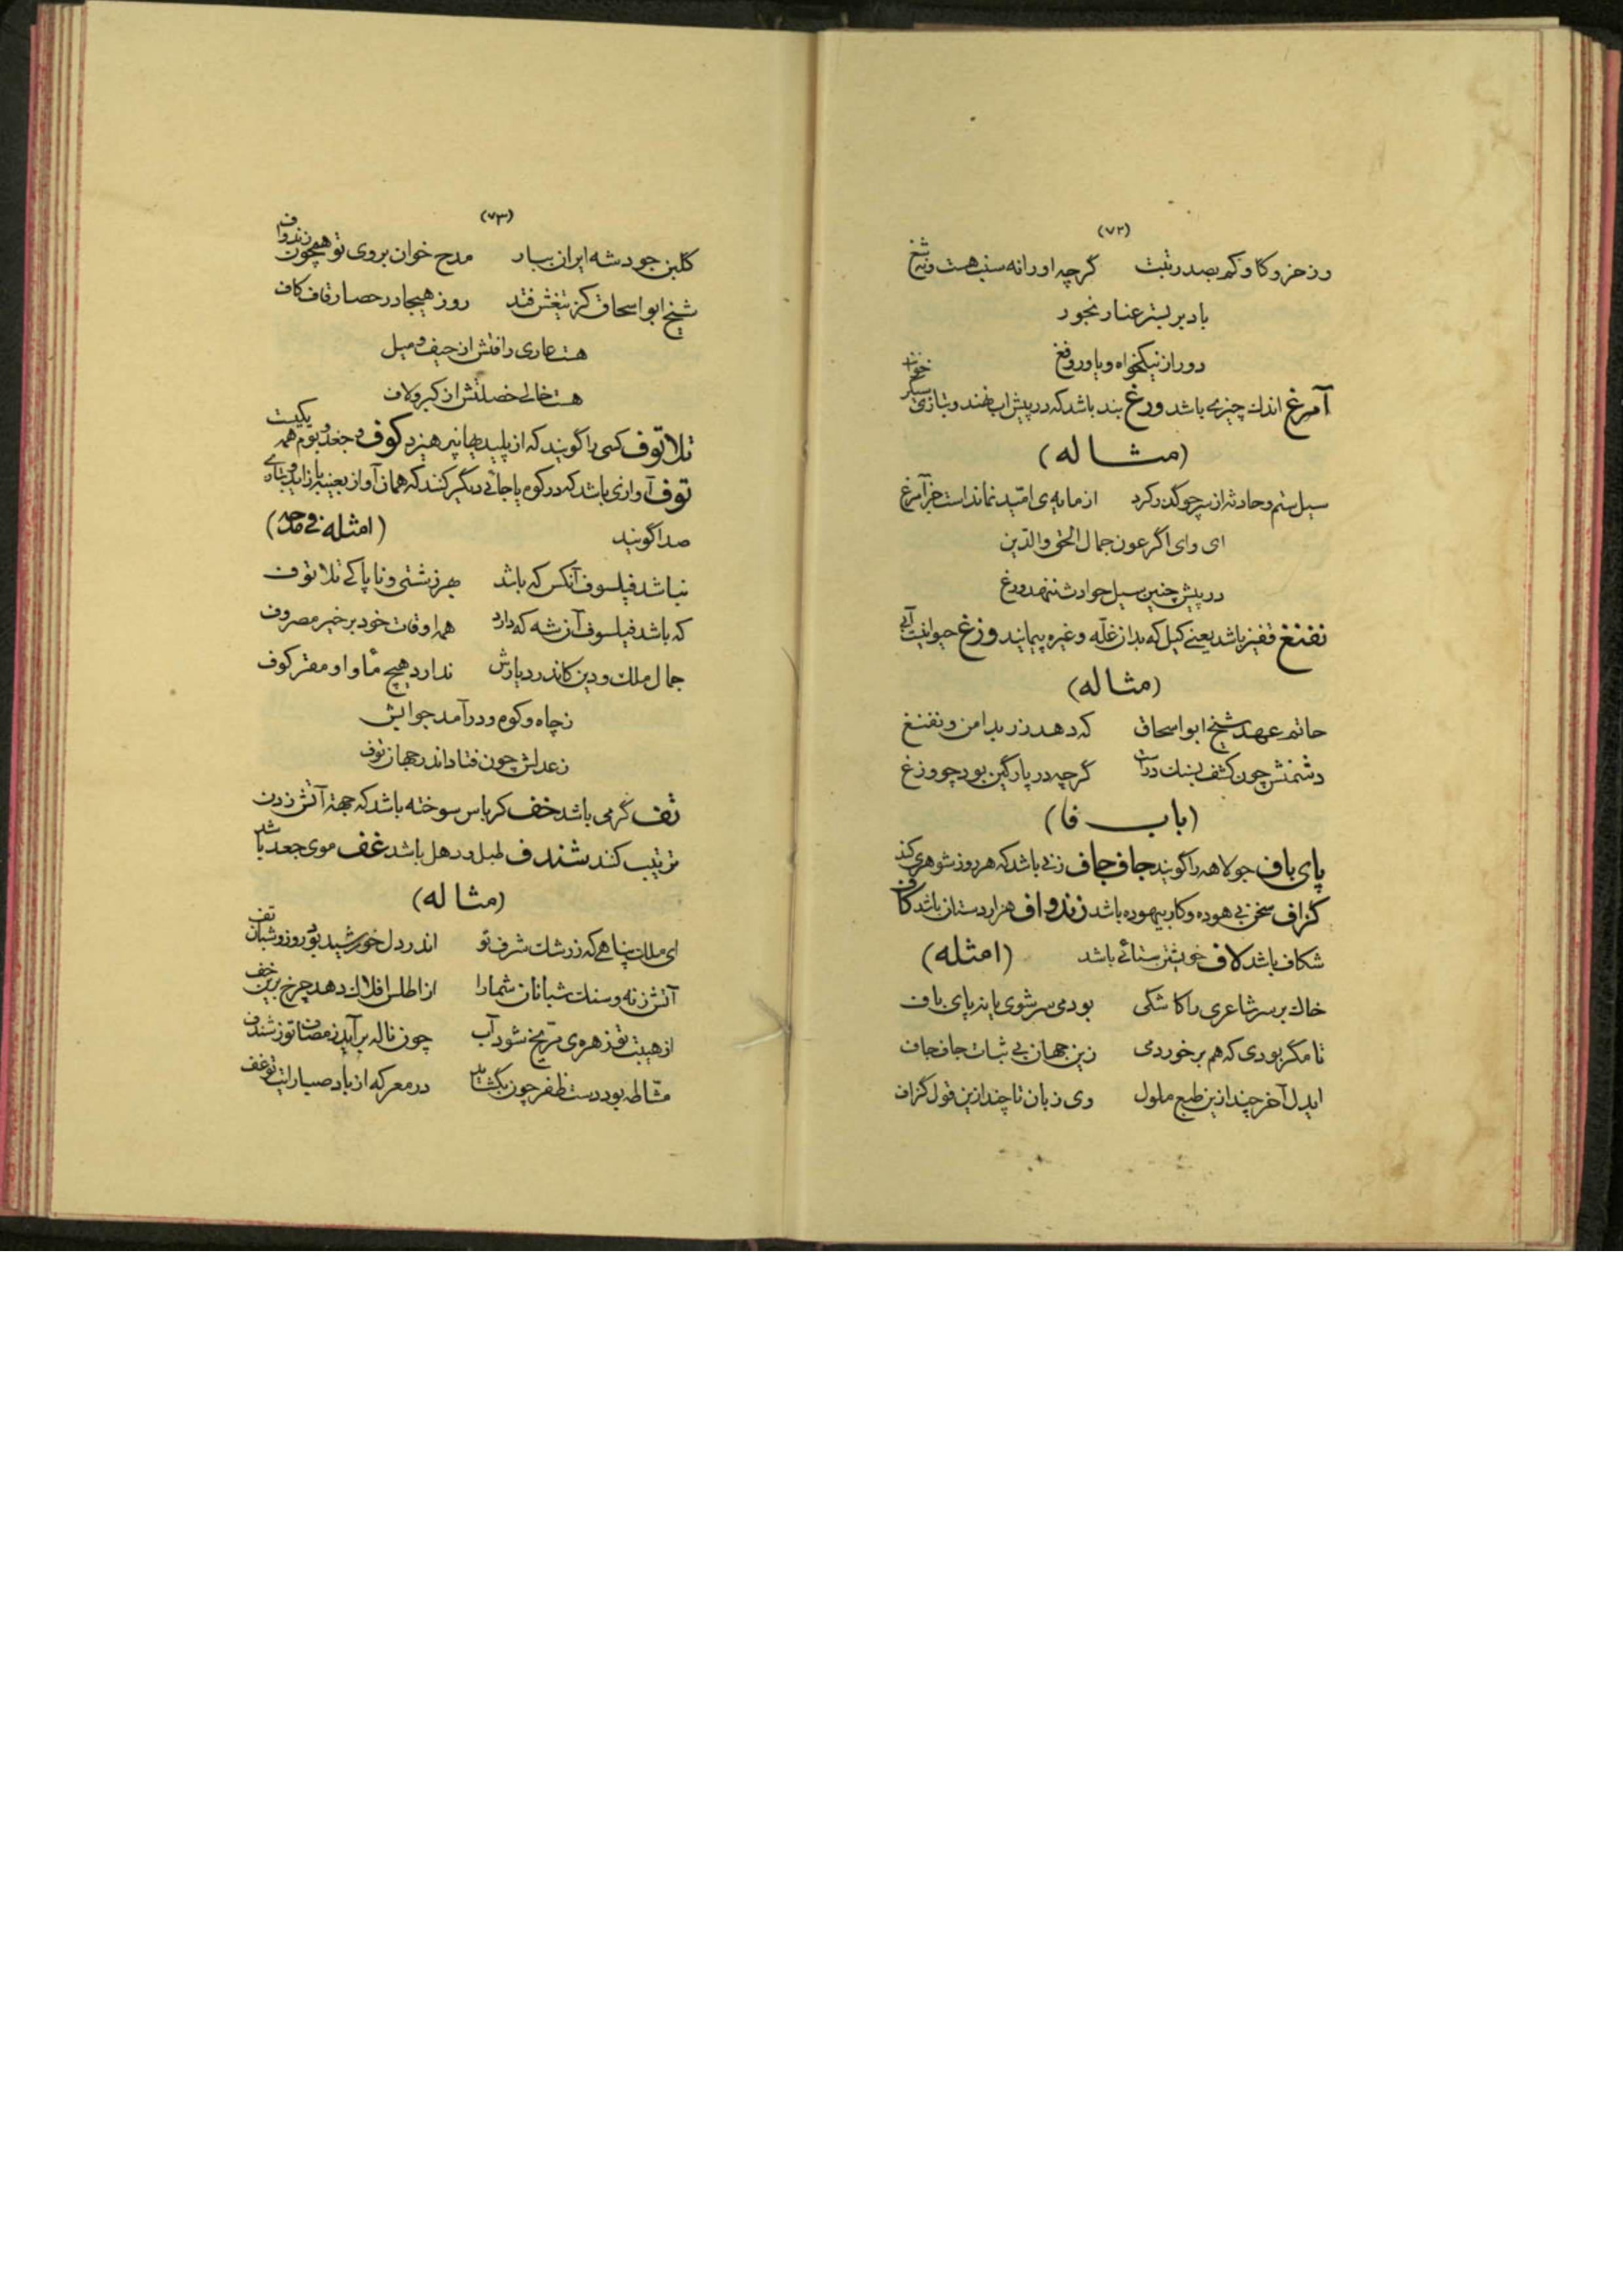 (۷۲)
وز خر و گاو کم بصد رتبت گرچه او را نه سنب هست و نه شغ
باد بر بستر عنا رنجور
دور از نیکخواه و یاور و فغ
آمرغ اندك چیزی باشد ورغ بند باشد که در پیش آب بندند و بتازی سکر خوانند
(مثاله)
سیل ستم و حادثه از سر چو گذر کرد از مایه‌ی امّید نماند است جز آمرغ
ای وای اگر عون جمال الحق والدّین
در پیش چنین سیل حوادث ننهد ورغ
نفنغ قفیز باشد یعنی کیل که بدان غلّه و غیره پیمایند وزغ حیوانیست آبی
(مثاله)
حاتم عهد شیخ ابو اسحاق که دهد زر بدامن و نفنغ
دشمنش چون کشف بسنك در است گرچه در پارگین بود چو وزغ
(باب فا)
پای باف جولاهه را گویند جاف جاف زنی باشد که هر روز شوهری کند
گزاف سخن بی هوده و کار بیهوده باشد زندواف هزاردستان باشد کاف
شکاف باشد لاف خویشتن ستائی باشد (امثله)
خاك بر سر شاعری را کاشکی بودمی سر شوی یا بد پای باف
تا مگر بودی که هم بر خوردمی زین جهان بی ثبات جاف جاف
ایدل آخر چند ازین طبع ملول وی زبان تا چند ازین قول گزاف
(۷۳)
گلبن جود شه ایران ببار مدح خوان بر وی تو همچون زندواف
شیخ ابو اسحاق کز تیغش فتد روز هیجا در حصار قاف کاف
هست عاری رافتش از حیف و میل
هست خالی خصلتش از کبر و لاف
تلاتوف کسی را گویند که از پلیدیها نپرهیزد کوف و جغد و بوم همه یکیست
توف آوازی باشد که در کوه یا جائی دیگر کنند که همان آواز بعینه باز آید و بتازی
صدا گویند (امثله فی مدحه)
نباشد فیلسوف آنکس که باشد بهر زشتی و ناپاکی تلاتوف
که باشد فیلسوف آن شه که دارد همه اوقات خود بر خیر مصروف
جمال ملك و دین کاندر دیارش ندارد هیچ مأوا و مقر کوف
ز چاه و کوه و در آمد جوابش
ز عدلش چون فتاد اندر جهان توف
تف گرمی باشد خف کرباس سوخته باشد که جهة آتش زدن
ترتیب کنند شندف طبل و دهل باشد غف موی جعد باشد
(مثاله)
ای ملك پناهی که ز رشك شرف تو اندر دل خورشید بود روز و شبان تف
آتش زنه و سنك شبانان شما را از اطلس افلاك دهد چرخ برین خف
از هیبت تو زهره‌ی مرّیخ شود آب چون ناله بر آید ز مصاف تو ز شندف
مشّاطه بود دست ظفر چون بگشاید در معرکه از باد صبا رایت تو غف